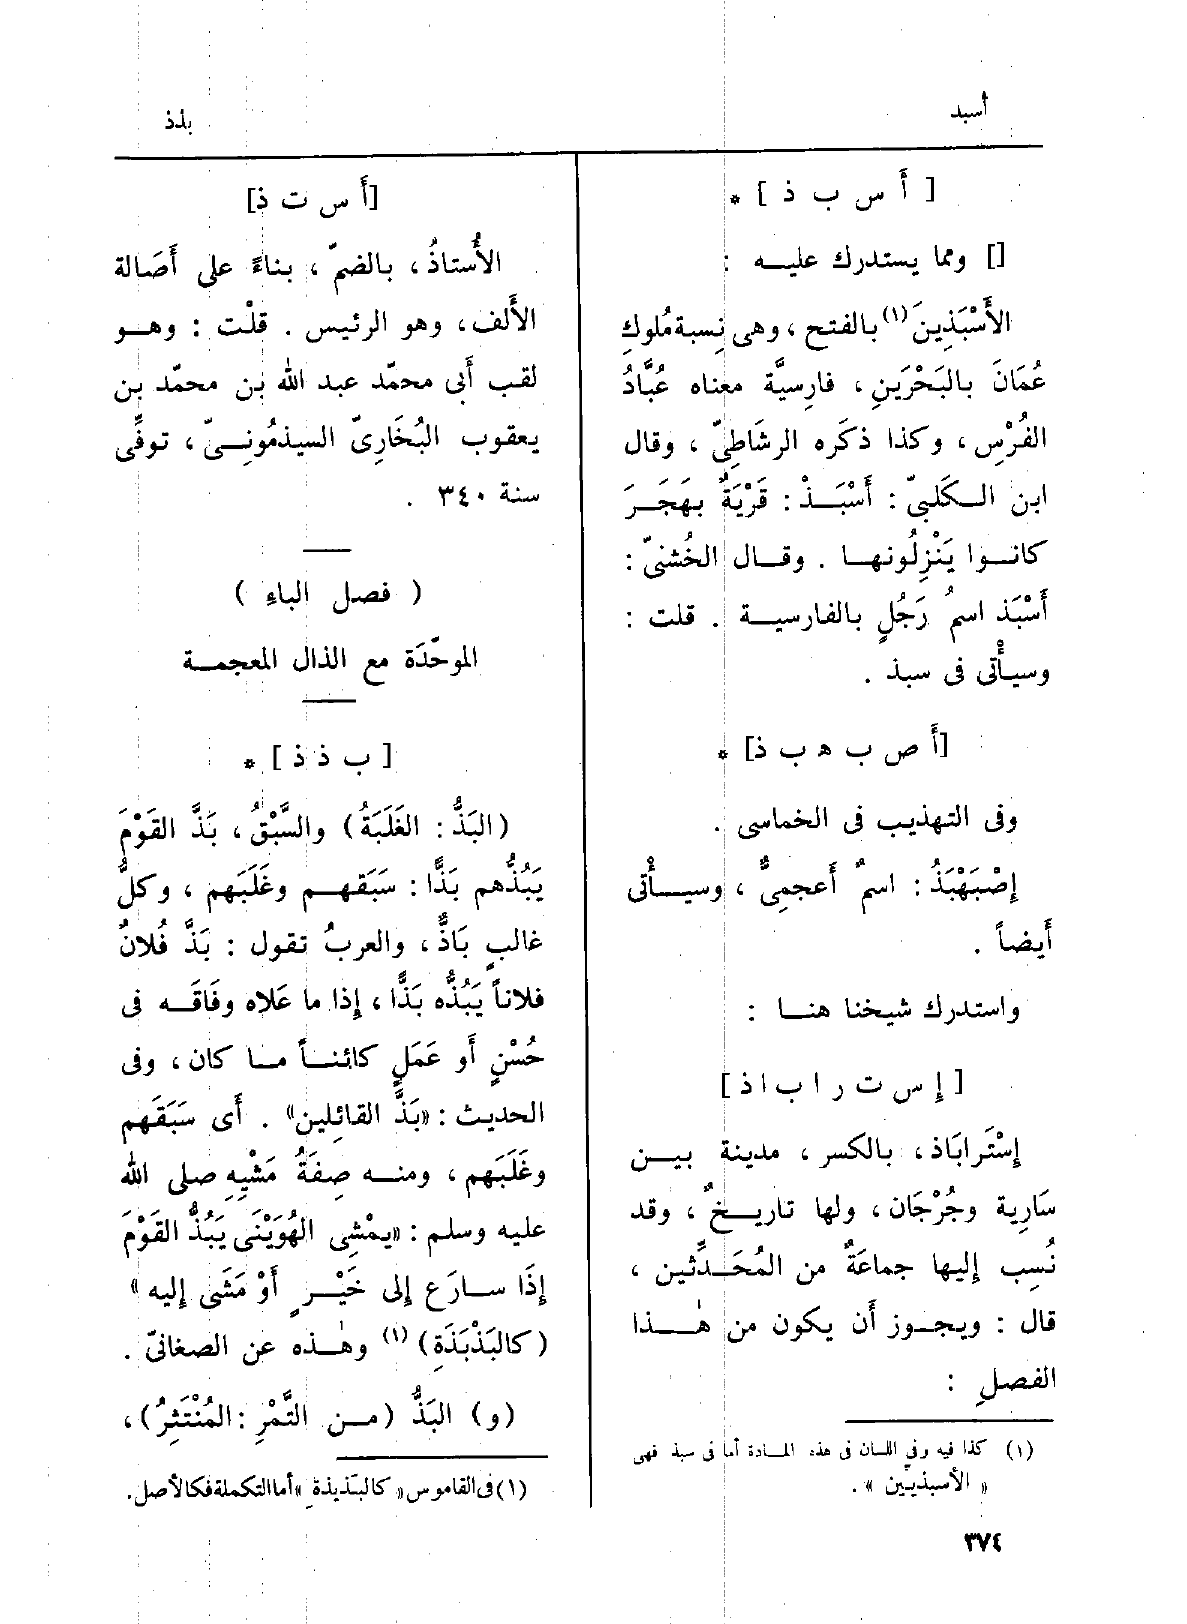 أسبد
بذذ
[ أ س ب ذ ] *
[] ومما يستدرك عليـــه :
الأَسْبَذِينَ(١) بالفتح ، وهى نِسبة مُلوكِ
عُمَانَ بالبَحْرَينِ ، فارِسيَّة معناه عُبَّادُ
الفُرْسِ ، وكذا ذكَره الرشَاطِىّ ، وقال
ابن الـكَلبىّ : أَسْبَـــذْ : قَرْيَةٌ بهَجَـرَ
كانــوا يَنْزِلُونهــا . وقــال الخُشنىّ :
أَسْبَذ اسمُ رَجُلٍ بالفارسيــة . قلت :
وسيــأْتى فى سبذ .
[أ ص ب ه ب ذ] *
وفى التهذيب فى الخماسى .
إِصْبَهْبَذُ : اسمٌ أَعجمِىٌّ ، وسيــأْتى
أَيضاً .
واستدرك شيخنا هنــا :
[ إ س ت ر ا ب ا ذ ]
إِسْتَراباذ ، بالكسر ، مدينة بيــن
سَارِية وجُرْجَان ، ولها تاريــخٌ ، وقد
نُسِب إِليها جماعَةٌ من المُحَــدِّثين ،
قال : ويجــوز أَن يكون من هٰــذا
الفصلِ :
(١) كذا فيه وفي اللسان فى هذه المــادة أما فى سبذ فهى
« الأسبذيّين » .
[أ س ت ذ]
الأُستاذُ ، بالضمّ ، بناءً على أَصَالة
الأَلف ، وهو الرئيس . قلْت : وهــو
لقب أَبى محمّد عبد الله بن محمّد بن
يعقوب البُخَارِىّ السيذمُونــىّ ، توفِّى
سنة ٣٤٠ .
( فصل الباءِ )
الموحّدَة مع الذال المعجمــة
[ ب ذ ذ ] *
(البَذُّ : الغَلَبَةُ) والسَّبْقُ ، بَذَّ القَوْمَ
يَبُذُّهم بَذًّا : سَبَقهــم وغَلَبَهم ، وكلُّ
غالبٍ بَاذٌّ ، والعربُ تقول : بَذَّ فُلانٌ
فلاناً يَبُذُّه بَذًّا ، إِذا ما عَلاه وفَاقَــه فى
حُسْنٍ أَو عَمَلٍ كائنــاً مــا كان ، وفى
الحديث : «بَذَّ القائِلين» . أَى سَبَقَهم
وغَلَبَهم ، ومنــه صِفَةُ مَشْيِهِ صلى الله
عليه وسلم : «يمْشِى الهُوَيْنَى يَبُذُّ القَوْمَ
إِذَا ســارَع إِلى خَيْــرٍ أَوْ مَشَى إِليه »
(كالبَذْبَذَةِ) (١) وهٰــذه عن الصغانىّ .
(و) البَذُّ (مــن التَّمْرِ : المُنْتَثِرُ) ،
(١) فى القاموس « كالبذيذة » أما التكملة فكالأصل .
٣٧٤